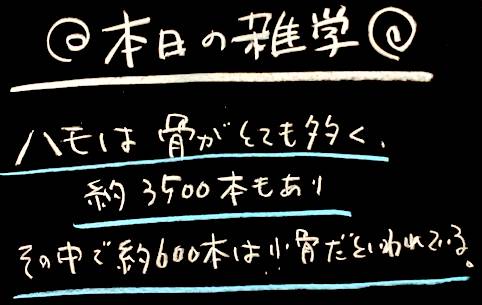 @本日の雑学@
ハモは骨がとても多く、
約3500本もあり
その中で約600本は小骨だといわれている。